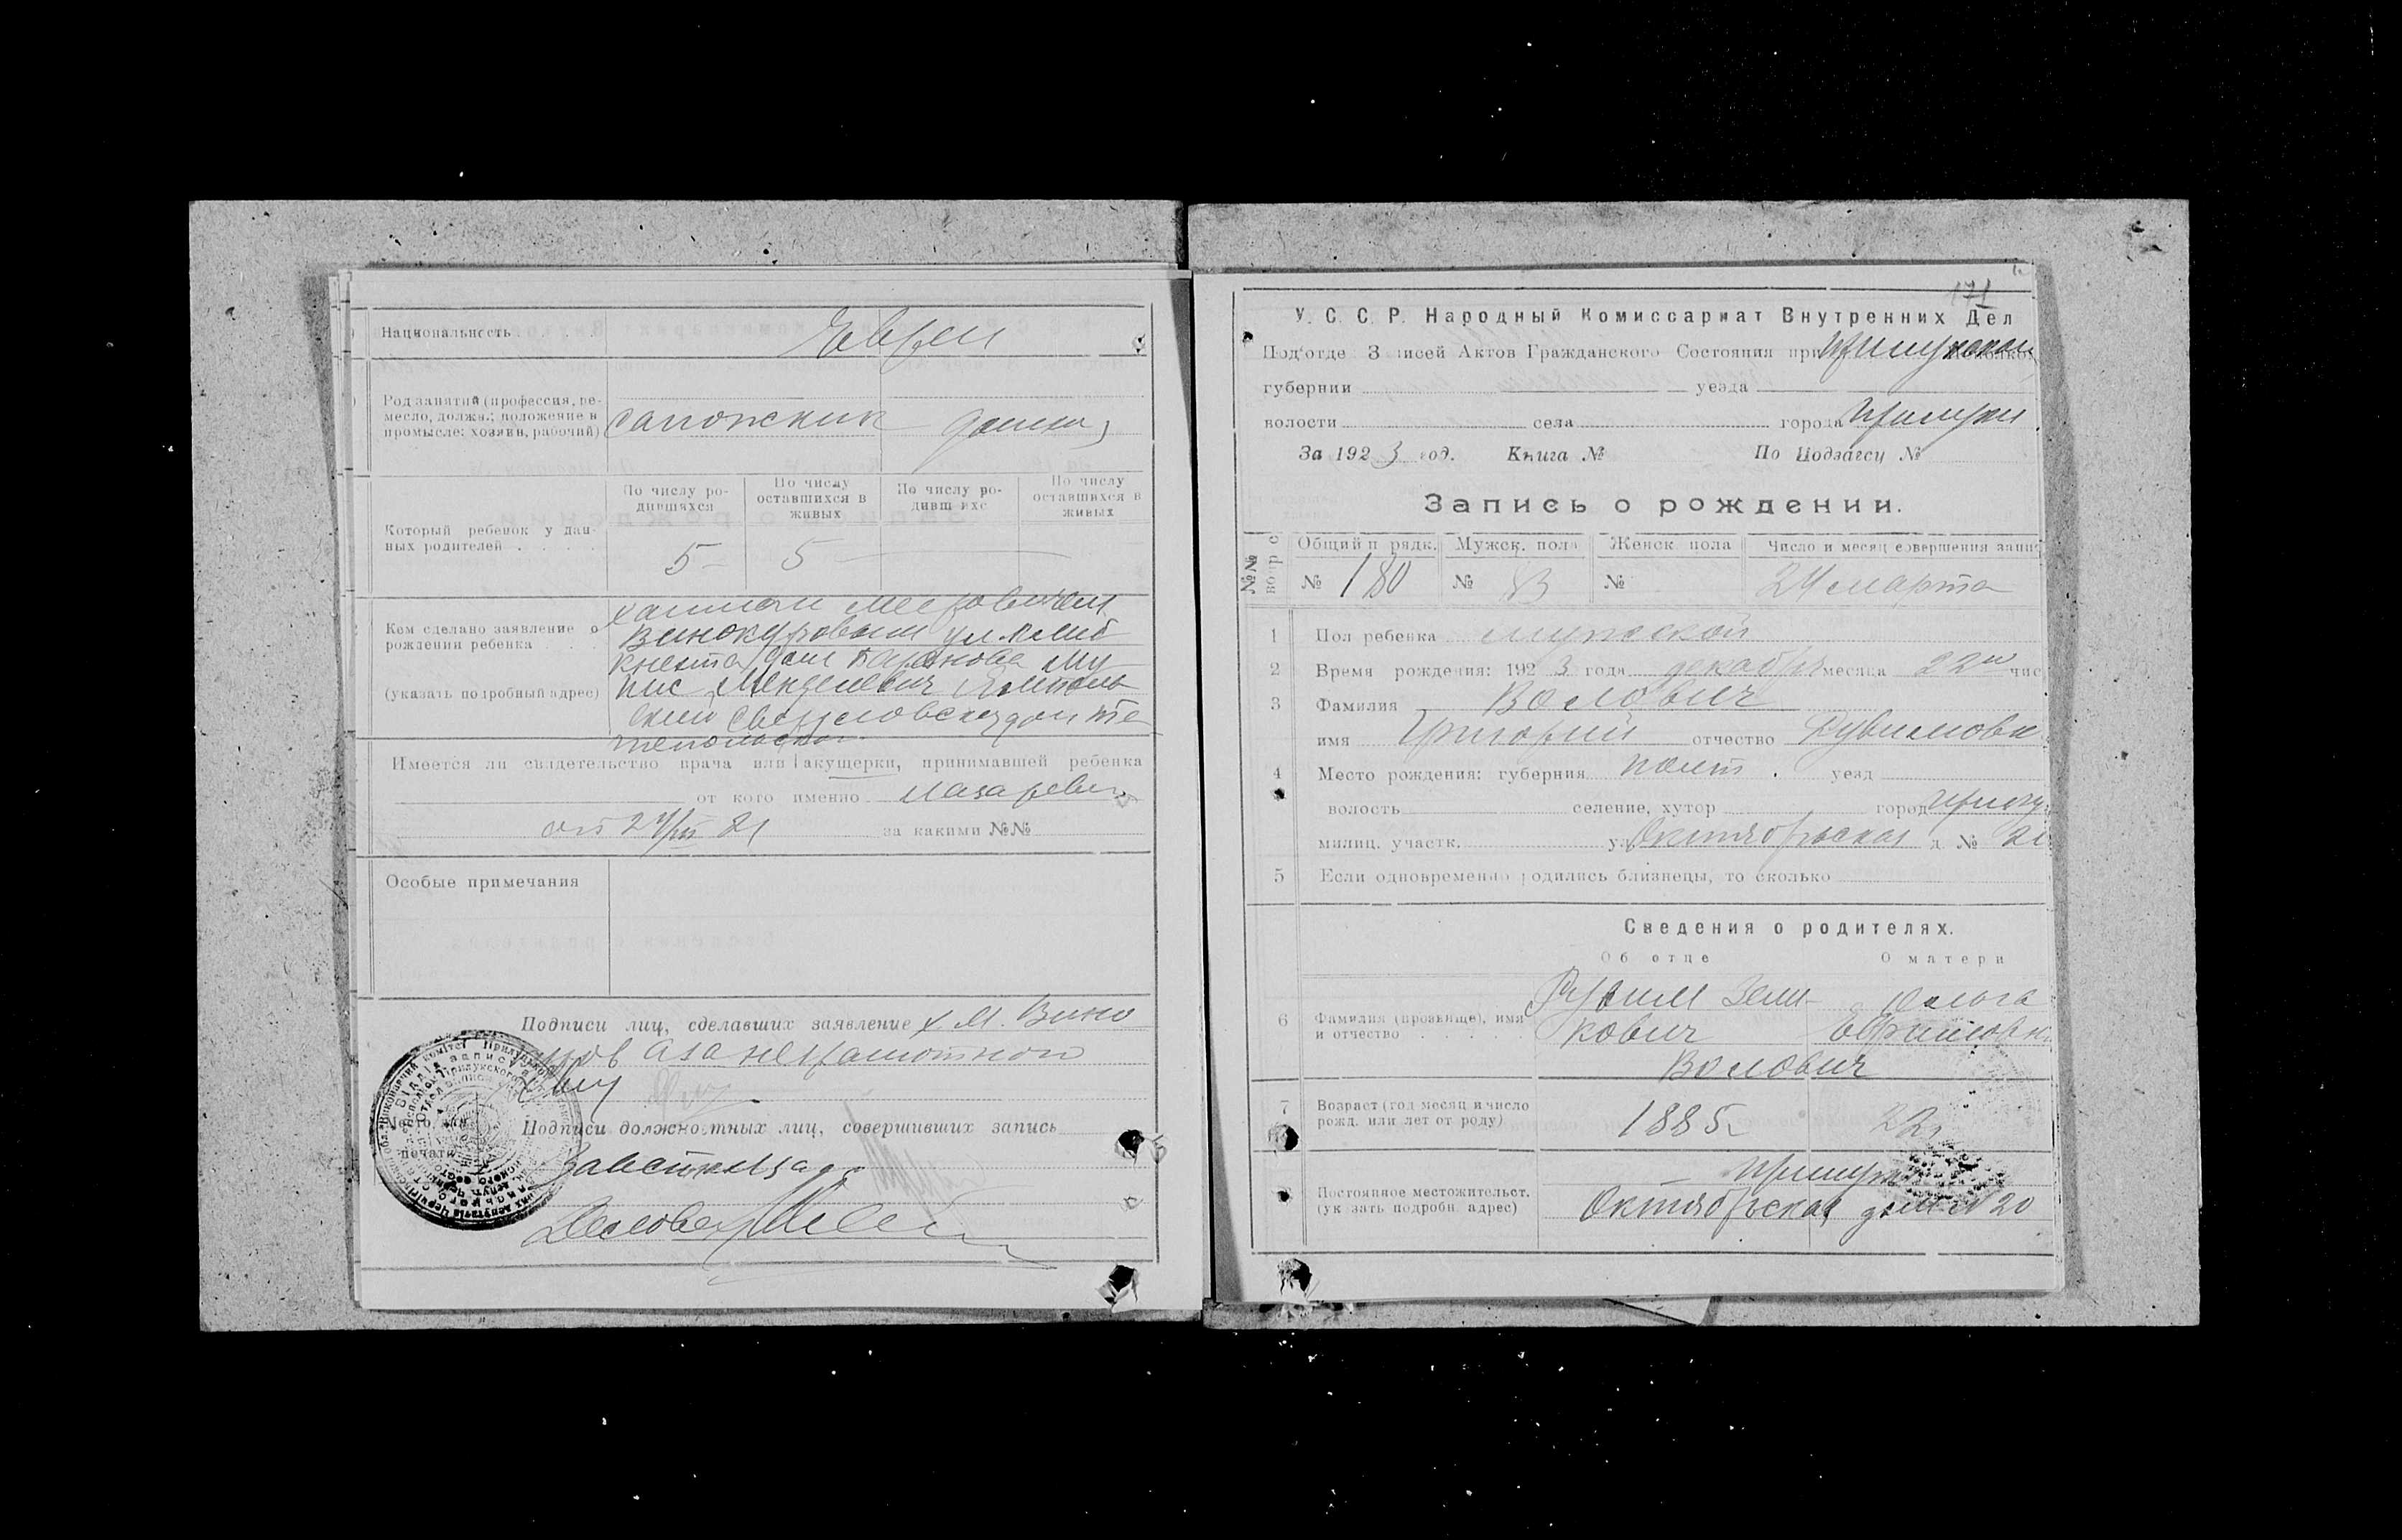 Национальность
Евреи
Род занятий (профессия, ре-
месло, должн.; положение в
промысле: хозяин, рабочий)
сапожник
домш,
Который ребенок у дан-
ных родителей
По числу ро-
дившихся
По числу
оставшихся в
живых
По числу ро-
дивш ихс
По числу
оставшихся в
живых
5 5
Кем сделано заявление о
рождении ребенка
(указать подробный адрес)
Винокуровым ул.
дом Баранова
Менделевич
Имеется ли свидетельство врача или акушерки, принимавшей ребенка
от кого именно Лазаревич
от за какими №№
Особые примечания
Подписи лиц, сделавших заявление Х. М. Вино
куров а за неграмотного
Место
печати
Подписи должностных лиц, совершивших запись
171
У. С. С. Р. Народный Комиссариат Внутренних Дел
Под'отде Записей Актов Гражданского Состояния при Прилукском
губернии уезда
волости села города Прилуки
За 1923 год. Книга № По Подзагсу №
Запись о рождении.
№№
Общий п рядк. Мужск. пола Женск. пола Число и месяц совершения запис
№ 180 № 83 № 24 марта
1 Пол ребенка мужской
2 Время рождения: 1923 года декабря месяца 22го чис
3 Фамилия Волович
имя Григорий отчество Рувимови
4 Место рождения: губерния Полт. уезд
волость селение, хутор город Прилу
милиц. участк. ул Октябрьская д. № 20
5 Если одновременно родились близнецы, то сколько
Сведения о родителях.
Об отце О матери
6 Фамилия (прозвище), имя
и отчество
Рувим Зели-
кович
Ольга
Ефраимовн
Волович
7 Возраст (год месяц и число
рожд. или лет от роду)
1885г 22г
8 Постоянное местожительст.
(ук зать подробн. адрес)
Прилуки
Октябрьская дом № 20